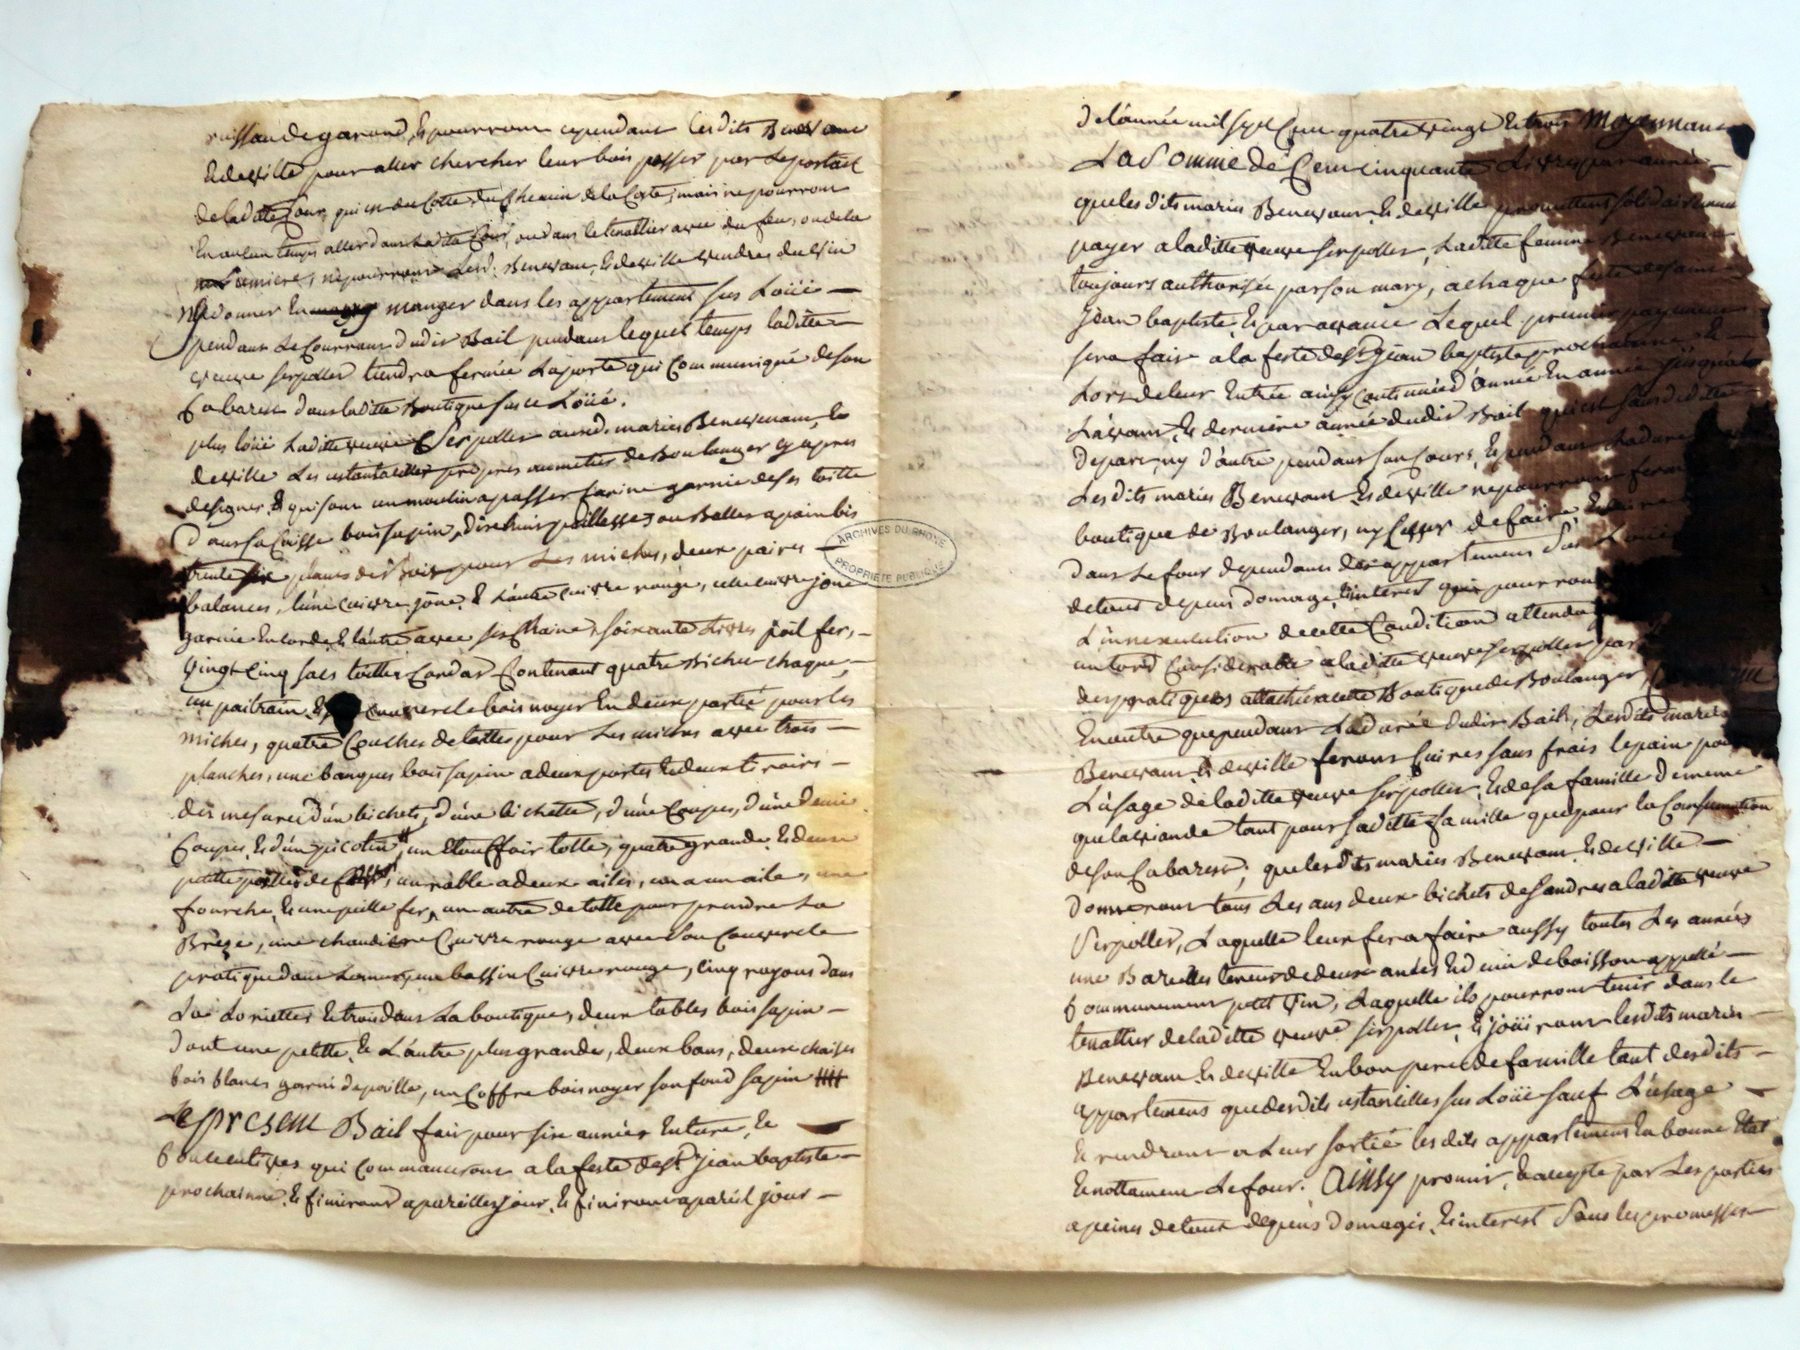 ruissau de garand, & pourront cependant lesdits Benevent
& deville pour aller chercher leur bois passer par le portail
de laditte Cour, qui est du Cotté du Chemin de la Coste, mais ne pourront
En aucun temps aller dans laditte Cour, ou dans le tenattier avec du feu, ou de la
Lumiere, ne pourront lesd. Benevent, & deville vendre du Vin
Ny donner En manger dans les appartement sus Loüé —
pendant Le Courrant dudit Bail pendant lequel temps laditte
veuve serpollet tiendra fermée Laporte qui Communique de son
Cabaret dans laditte Boutique sus Loüé.
plus loüé Laditte veuve Serpollet auxd. maries Benevent, &
deville Les ustantailles propres au metier de Boulanger cy apres
designer, & qui sont un moulin a passer farine garnie de ses toille
dans sa Caisse bois sapin, dix huit paillesses ou Balles a pain bis
trente six plans de Bois pour Les miches, deux paires —
balances, l'une cuivre jône, & L'autre cuivre rouge, celle cuivre jône
garnie En corde, & l'autre avec ses Chaine, soixante Livres poid fer, —
Vingt Cinq sacs toilles Cordat Contenant quatre Bichet chaque, —
un paitrain, & Couvercle bois noyer En deux partie pour les
miches, quatre Couches de toilles pour Les miches avec trois —
planches, une banques bois sapin a deux portes & deux tiroirs —
des mesures d'un bichet, d'une bichette, d'une Coupes, d'une Demi
Coupes, & d'un picotin, un Etouffoir tolle, quatre grande & deux
petitte de, un rable a deux ailes, un a un aile, une
fourche, & une pelle fer, un autre de tolle pour prendre La
Breze, une chaudiere Cuivre rouge avec son Couvercle
pratique dans Lemur, un bassin Cuivre rouge, Cinq rayons dans
La & trois dans La boutique, deux tables bois sapin —
dont une petitte, & L'autre plus grande, deux bans, deux chaises
bois blancs garni de paille, un Coffre bois noyer son fond sapin
Le present Bail fait pour six années Entiere, &
Consecutives qui Commanceront a la feste de St jean baptiste —
prochainne, & finiront a pareilles jour, & finiront a pareil jour —
de l'année mil sept Cent quatre vingt & trois Moyennant
La Somme de Cent cinquante Livres par année —
que lesdits maries Benevent & deville promettent solidairement
payer a laditte veuve serpollet, Laditte femme Benevent
toujours authorisée par son mary, a chaque feste de saint
jean baptiste, & par avance Lequel premier payement
sera fait a la feste de St jean baptiste prochainne &
Lors de leur Entrée ainsy Continuée d'année En année jusqua
L'avant, & derniere année dudit Bail qui est sans deditte
de part, ny d'autre pendant son Cours, & pendant sa durée
Lesdits maries Benevent & deville ne pourront fermer
boutique de Boulanger, ny Cesser de faire
dans le four dependant des appartement Sus Loüé
de tous depens domage, interest qui pourront
L'innexecution de cette Condition attendu
untord Considerable a laditte veuve serpollet par
des pratiques attachées a cette Boutique de Boulanger,
En outre que pendant La durée dudit Bail, Lesdits maries
Benevent & deville feront Cuires sans frais le pain pour
L'usage de laditte veuve serpollet, & de sa famille de meme
que la viande tant pour saditte famille que pour la Consumation
de son Cabaret, que lesdits maries Benevent & deville —
donneront tous Les ans deux bichets de Cendres a laditte veuve
Serpollet, Laquelle leur fera faire aussy toutes Les années
une Bareilles teneur de deux anées & demi de boisson appellé
Communement petit Vin, Laquelle ils pourront tenir dans le
tenattier de laditte veuve serpollet, & joüiront lesdits maries
Benevent & deville En bon pere de famille tant desdits —
appartements que desdits ustancilles sus Loüé sauf L'usage —
& rendront a Leur sortie lesdits appartement En bonne Etat
& nottament Le four. Ainsy promis, & accepté par Les parties
a peines de tous depens domages, & interest Sous les promesses